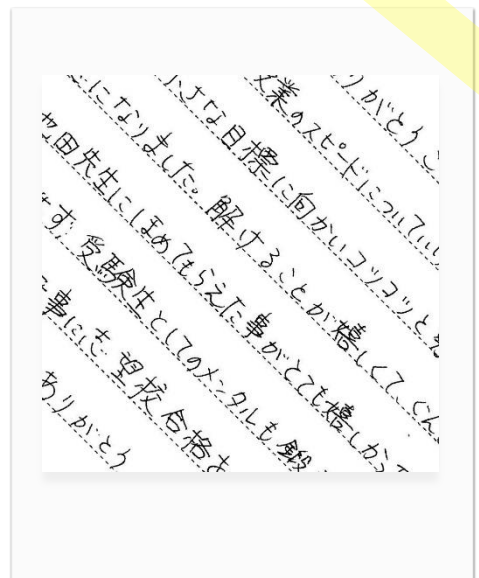 りがとうご
業のスピードについてい
さな目標に向かいコツコツと
になりました。解けることが嬉しくて、ぐん
田先生にほめてもらえた事がとても嬉しかっ
せず、受験生としてのメンタルも鍛
事に志望校合格を
ありがとう